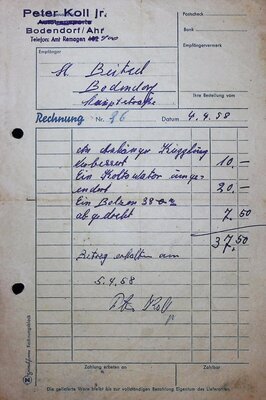 Peter Koll jr.
Autotransporte
Bodendorf/Ahr
Telefon: Amt Remagen 700
Postscheck
Bank
Empfängervermerk
Empfänger
M. Beitel
Bodendorf
Hauptstraße
Ihre Bestellung vom
Rechnung Nr. 86 Datum 4.4.58
Kupplung
verbessert 10.—
Ein umge-
ändert 20.—
Ein Bolzen
abgedreht 7.50
37,50
Betrag erhalten am
5.4.58
P. Koll
jr
Zahlung erbeten an
Zahlbar
Die gelieferte Ware bleibt bis zur vollständigen Bezahlung Eigentum des Lieferanten.